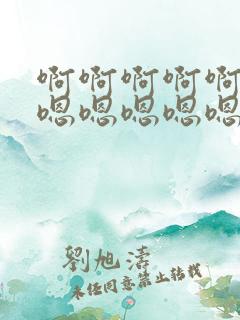 啊啊啊啊啊
嗯嗯嗯嗯嗯
劉旭濤
未经同意禁止转载